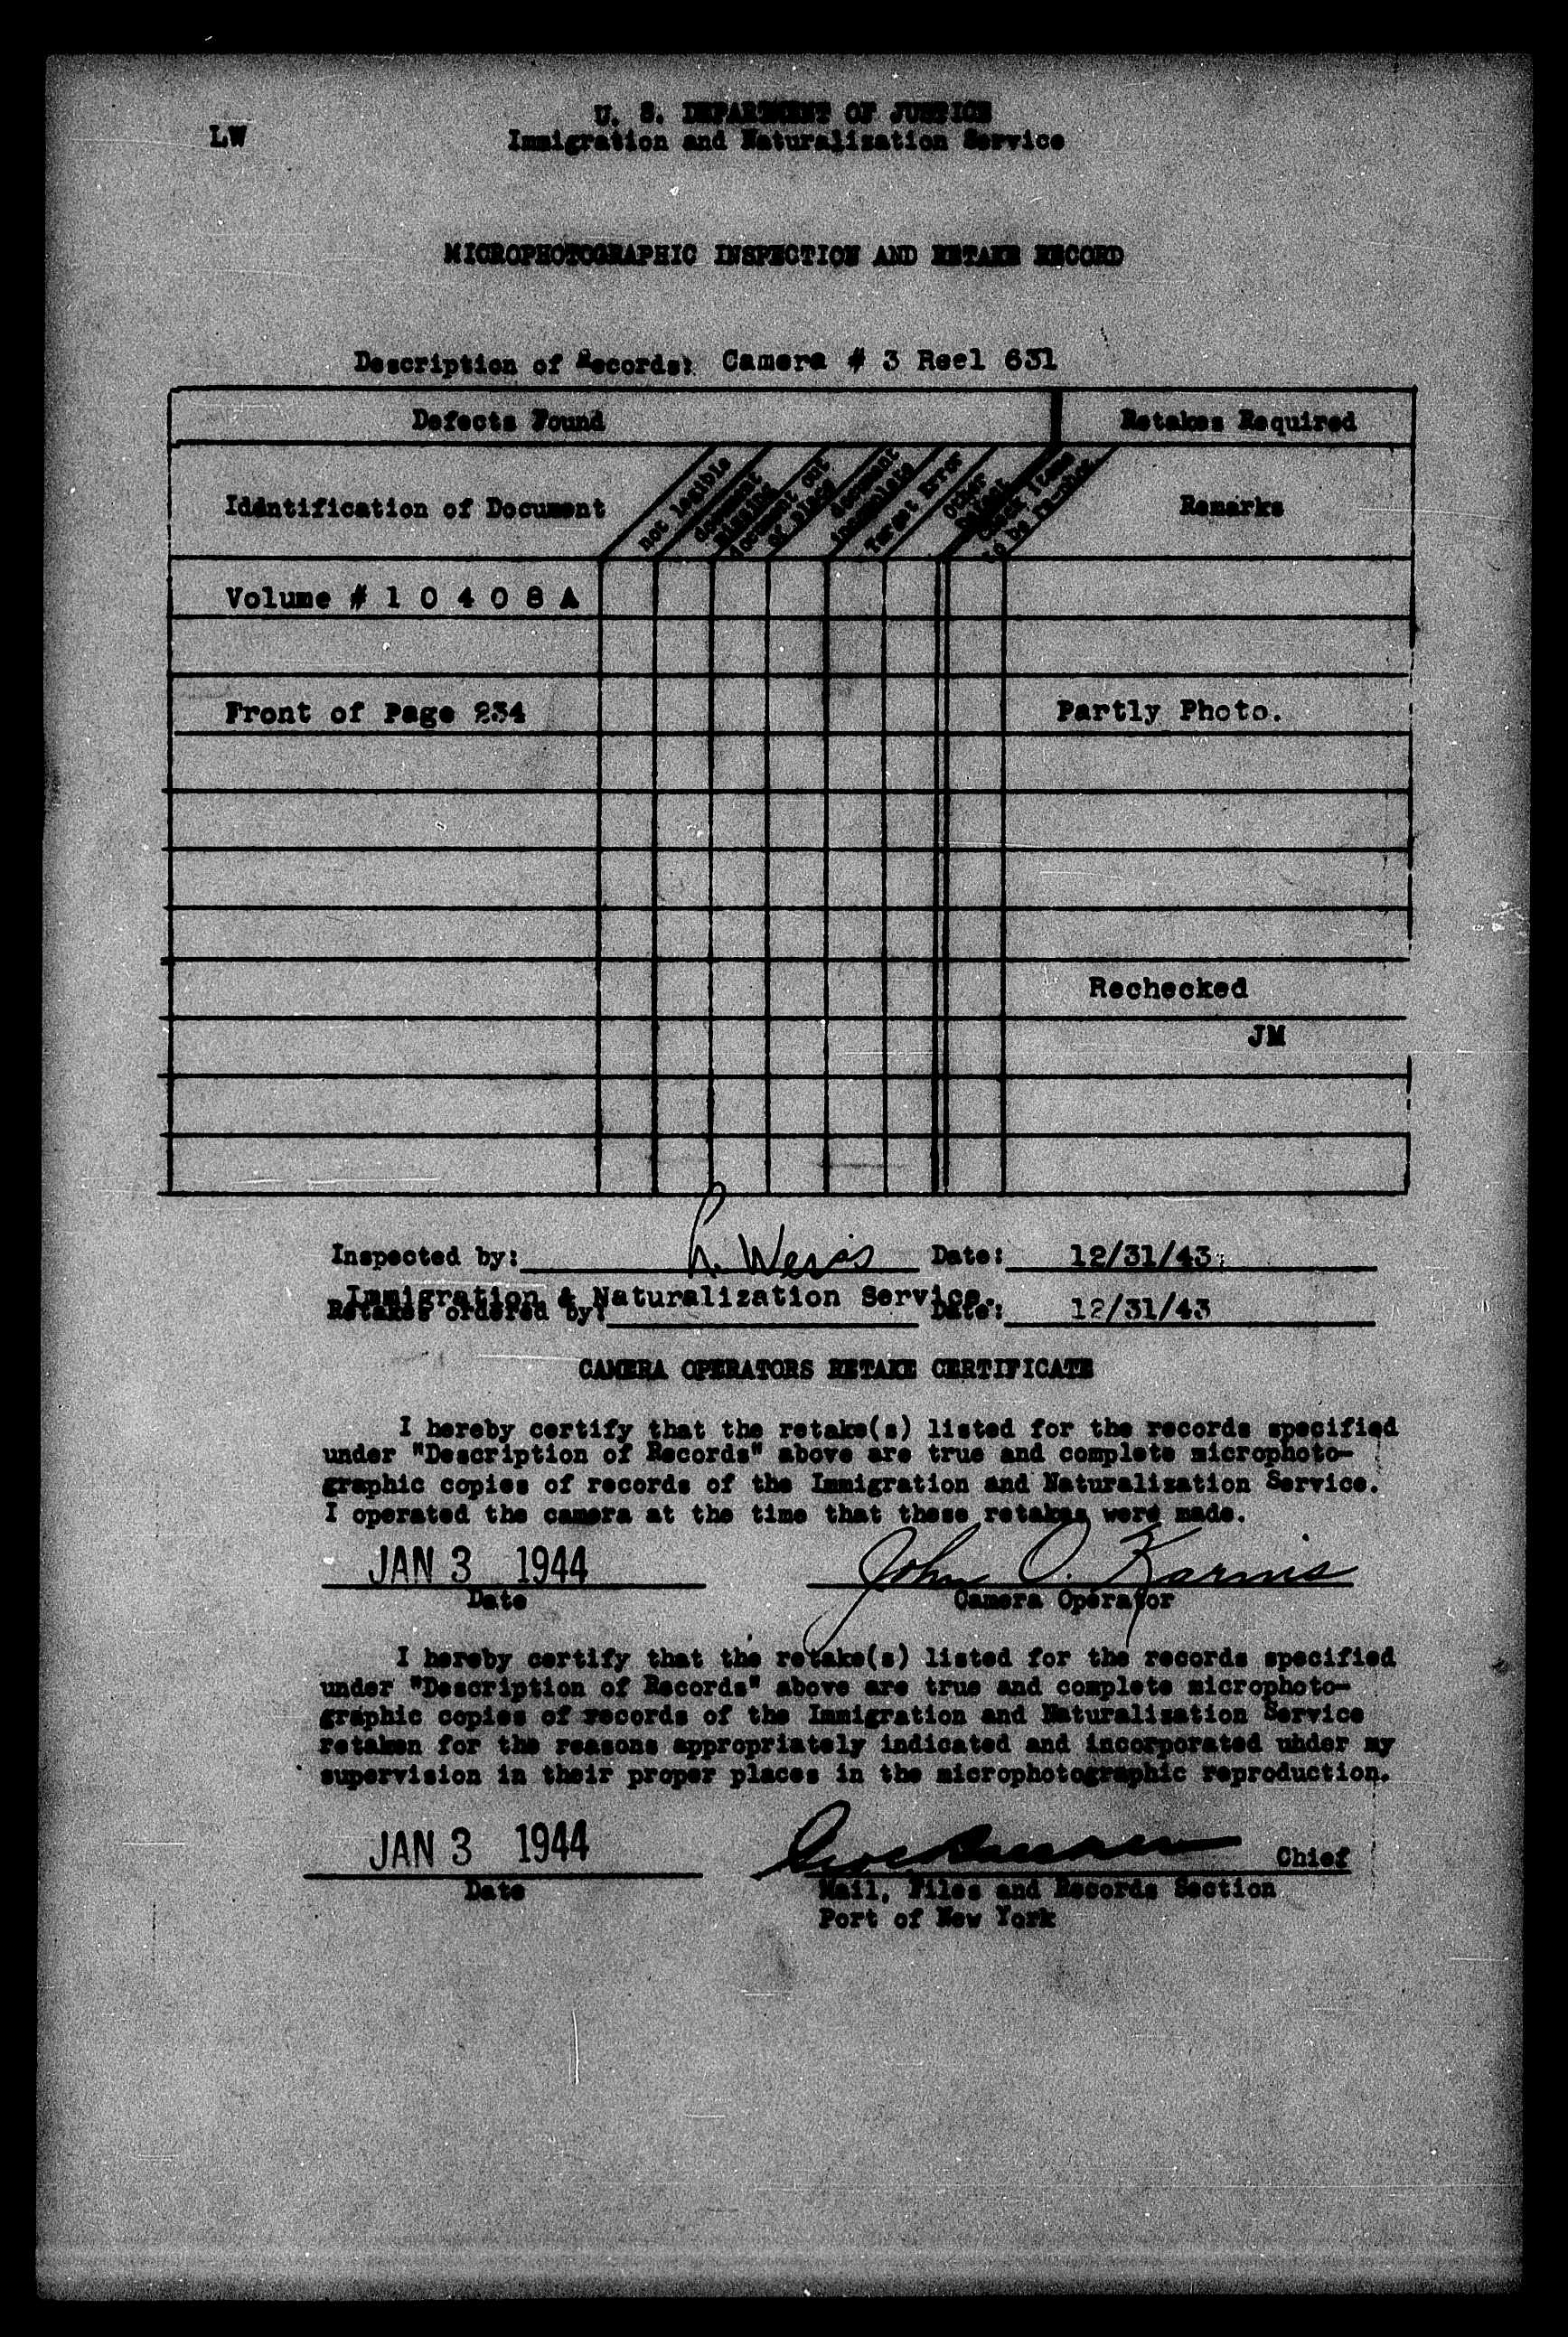 LW
U. S. DEPARTMENT OF JUSTICE
Immigration and Naturalization Service
MICROPHOTOGRAPHIC INSPECTION AND RETAKE RECORD
Description of Records: Camera # 3 Reel 631
Defects Found
Retakes Required
Iddntification of Document
not legible
document missing
document out of place
document incomplete
Target Error
Other Defect
Check items to be re-shot
Remarks
Volume # 1 0 4 0 8 A
Front of Page 234
Partly Photo.
Rechecked
JM
Inspected by: R. Weiss Date: 12/31/43
Immigration & Naturalization Service.
Retakes ordered by: Date: 12/31/43
CAMERA OPERATORS RETAKE CERTIFICATE
I hereby certify that the retake(s) listed for the records specified
under "Description of Records" above are true and complete microphoto-
graphic copies of records of the Immigration and Naturalization Service.
I operated the camera at the time that these retakes were made.
JAN 3 1944 John O. Karnis
Date Camera Operator
I hereby certify that the retake(s) listed for the records specified
under "Description of Records" above are true and complete microphoto-
graphic copies of records of the Immigration and Naturalization Service
retaken for the reasons appropriately indicated and incorporated under my
supervision in their proper places in the microphotographic reproduction.
JAN 3 1944 Chief
Date Mail, Files and Records Section
Port of New York